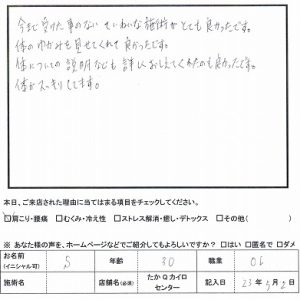 今まで受けた事のない ていねいな施術がとても良かったです。
体のゆがみも見せてくれて良かったです。
体についての説明なども詳しくおしえてくれたのも良かったです。
体がスッキリしてます。
本日、ご来店された理由に当てはまる項目をチェックしてください。
☑肩こり・腰痛 □むくみ・冷え性 □ストレス解消・癒し・デトックス □その他( )
※ あなた様の声を、ホームページなどでご紹介してもよろしいですか? □はい □匿名で □ダメ
お名前 (イニシャル可) S 年齢 30 職業 OL
施術名 店舗名(必須) たかQカイロセンター 記入日 23年5月2日